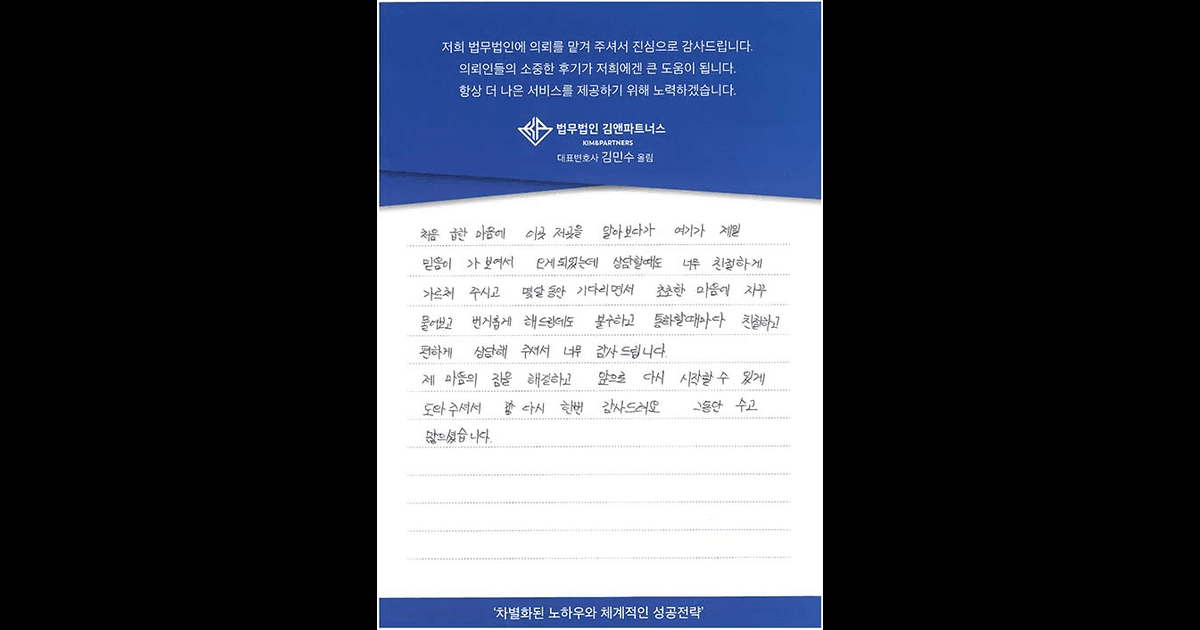 저희 법무법인에 의뢰를 맡겨 주셔서 진심으로 감사드립니다.
의뢰인들의 소중한 후기가 저희에겐 큰 도움이 됩니다.
항상 더 나은 서비스를 제공하기 위해 노력하겠습니다.
법무법인 김앤파트너스
KIM&PARTNERS
대표변호사 김민수 올림
처음 급한 마음에 이곳 저곳을 알아보다가 여기가 제일
믿음이 가 보여서 오게되었는데 상담할때도 너무 친절하게
가르쳐 주시고 몇달동안 기다리면서 초초한 마음에 자꾸
물어보고 번거롭게 해드림에도 불구하고 통화할때마다 친절하고
편하게 상담해 주셔서 너무 감사드립니다.
제 마음의 짐을 해결하고 앞으로 다시 시작할 수 있게
도와주셔서 다시 한번 감사드려요 그동안 수고
많으셨습니다.
'차별화된 노하우와 체계적인 성공전략'